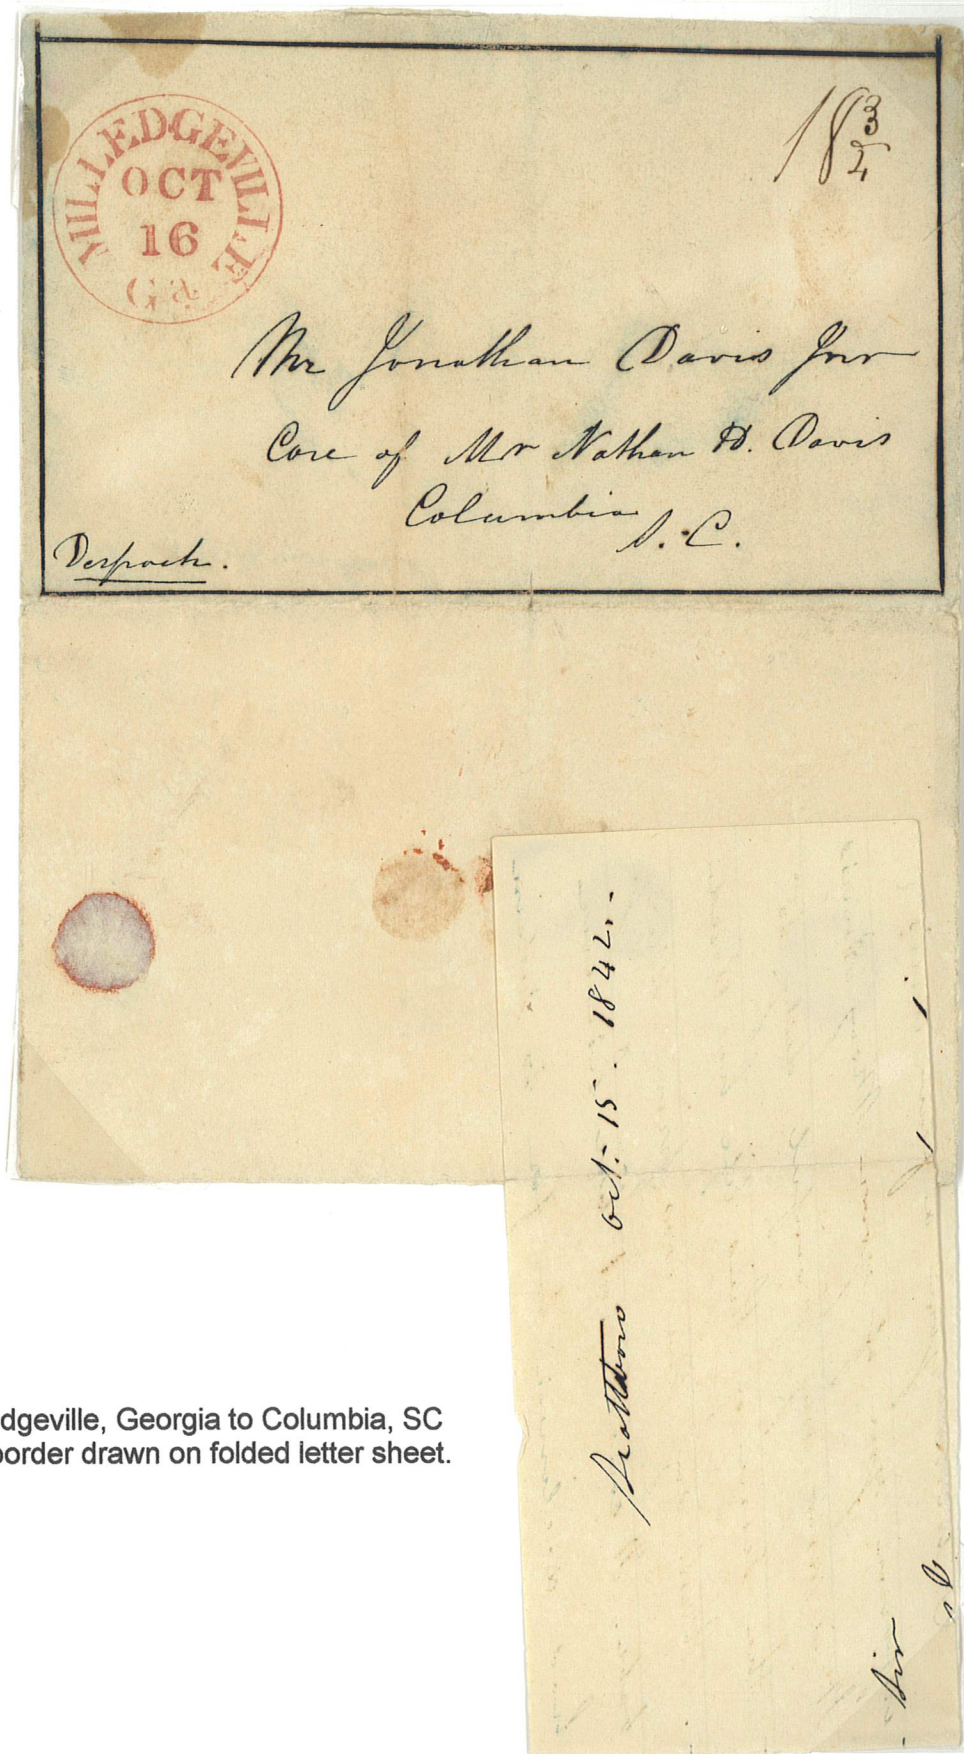 MILLEDGEVILLE
OCT
16
Ga
18 3/4
Mr Jonathan Davis Jnr
Care of Mr Nathan D. Davis
Columbia
S. C.
Despach.
Scottsboro Oct. 15. 1842.-
Sir
dgeville, Georgia to Columbia, SC
border drawn on folded letter sheet.